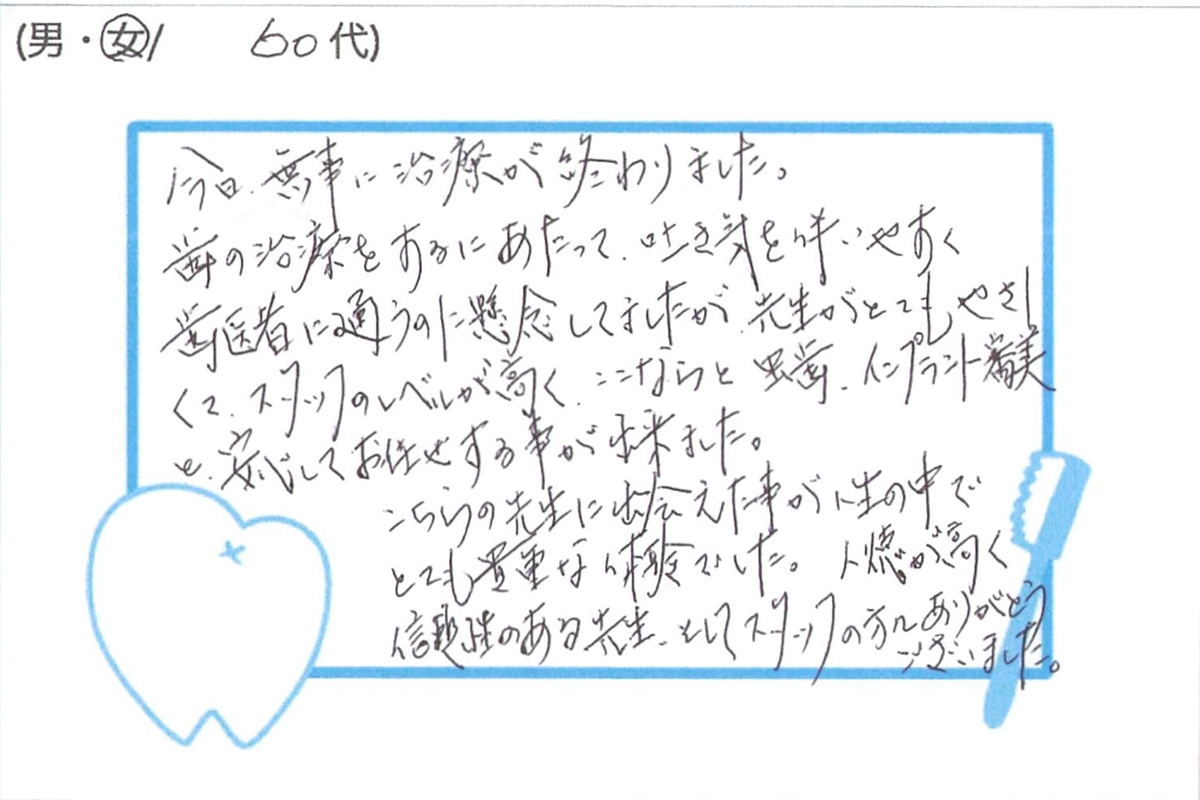 (男・女/ 60代)
今日、無事に治療が終わりました。
歯の治療をするにあたって、吐き気を伴いやすく
歯医者に通うのに懸念してましたが、先生がとてもやさし
くて、スタッフのレベルが高く、ここならと虫歯、インプラント審美
と、安心してお任せする事が出来ました。
こちらの先生に出会えた事が人生の中で
とても貴重な体験でした。人徳が高く
信頼性のある先生、そしてスタッフの方々ありがとう
ございました。